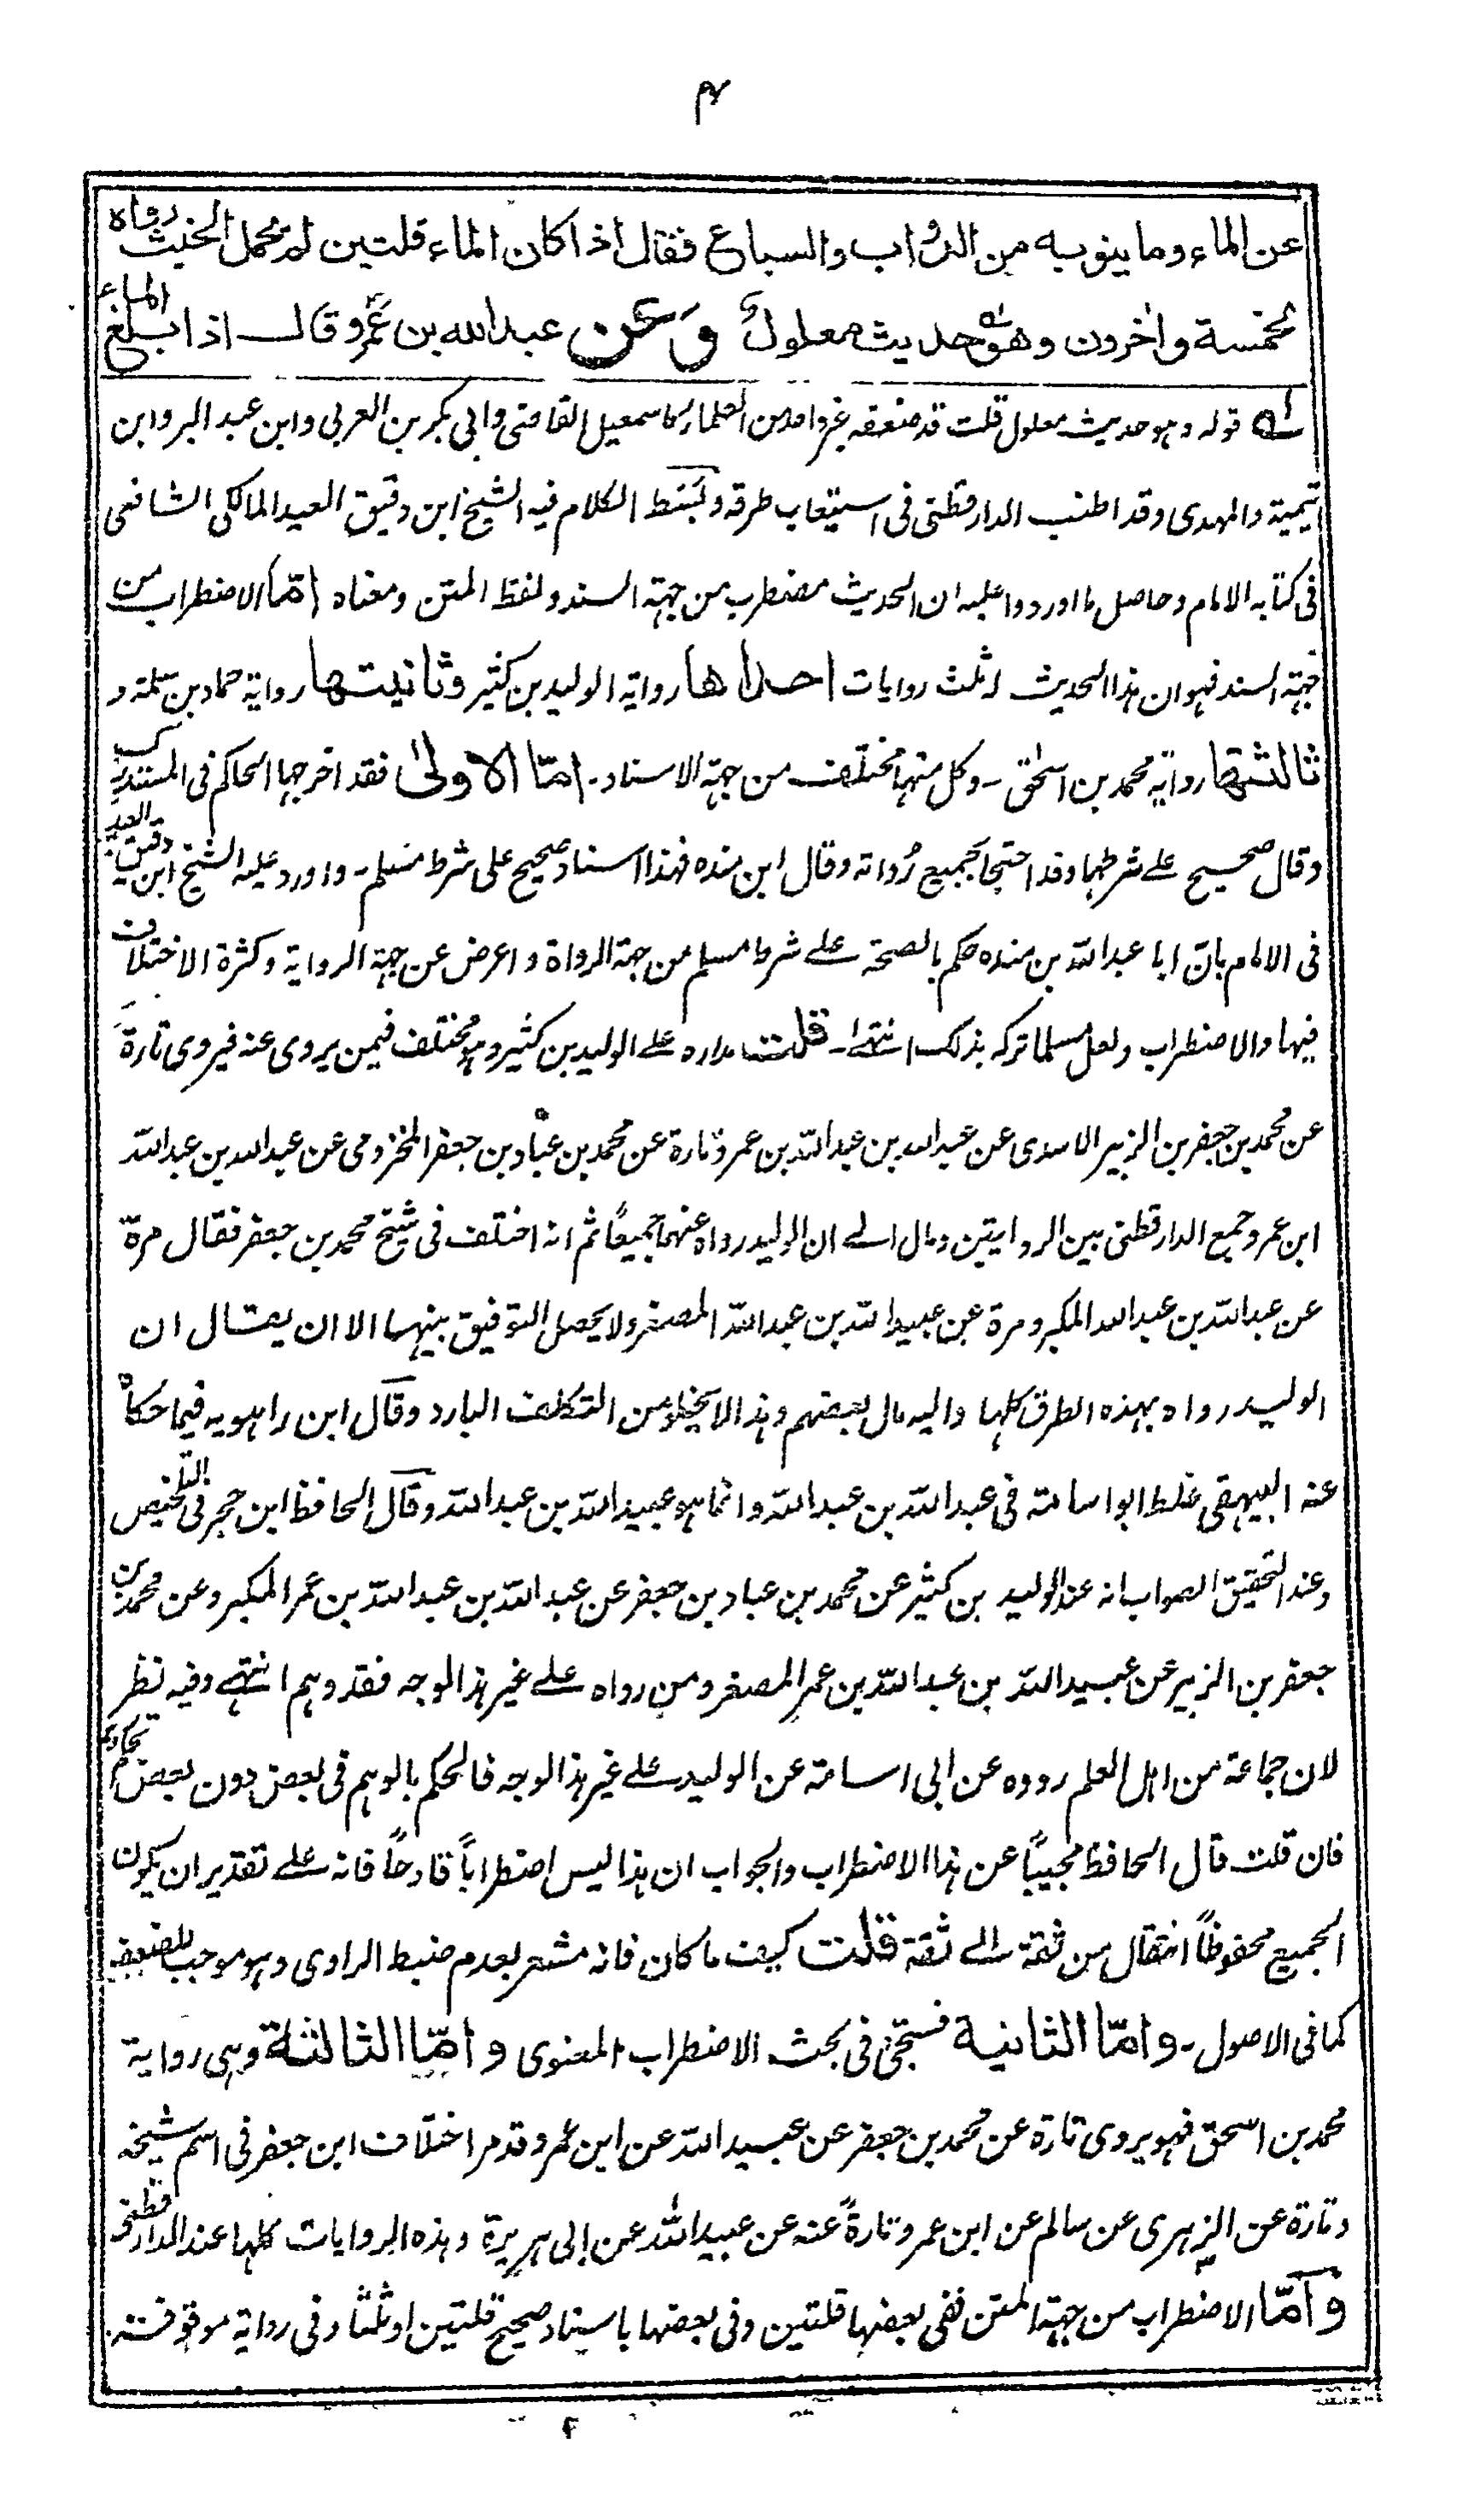 ۴
عن الماء وما ينوبه من الدواب والسباع فقال اذا كان الماء قلتين لم يحمل الخبث رواه
الخمسة واٰخرون وهو حديث معلول وعن عبد الله بن عمرو قال اذا بلغ الماء
له قوله وهو حديث معلول قلت قد ضعفه غير واحد من العلماء كاسمعيل القاضى وابى بكر بن العربى وابن عبد البر وابن
تيمية والمهدى وقد اطنب الدارقطنى فى استيعاب طرقه وبسط الكلام فيه الشيخ ابن دقيق العيد المالكى الشافعى
فى كتابه الامام وحاصل ما اوردوا عليه ان الحديث مضطرب من جهة السند ولفظ المتن ومعناه امّا الاضطراب من
جهة السند فهو ان هذا الحديث له ثلث روايات احداها رواية الوليد بن كثير وثانيتها رواية حماد بن سلمة و
ثالثتها رواية محمد بن اسحٰق - وكل منها مختلف من جهة الاسناد - امّا الاولىٰ فقد اخرجها الحاكم فى المستدرك
وقال صحيح على شرطهما وقد احتجا بجميع رُواته وقال ابن منده فهذا اسناد صحيح على شرط مسلم - واورد عليه الشيخ ابن دقيق العيد
فى الامام بانّ ابا عبد الله بن منده حكم بالصحة على شرط مسلم من جهة الرواة واعرض عن جهة الرواية وكثرة الاختلاف
فيها والاضطراب ولعل مسلما تركه بذلك انتهى - قلت مداره على الوليد بن كثير وهو مختلف فيمن يروى عنه فيروى تارةً
عن محمد بن جعفر بن الزبير الاسدى عن عبد الله بن عبد الله بن عمر وتارة عن محمد بن عباد بن جعفر المخزومى عن عبد الله بن عبد الله
ابن عمر وجمع الدارقطنى بين الروايتين ومال الى ان الوليد رواه عنهما جميعًا ثم انه اختلف فى شيخ محمد بن جعفر فقال مرّة
عن عبد الله بن عبد الله المكبر ومرة عن عبيد الله بن عبد الله المصغر ولا يحصل التوفيق بينهما الا ان يقال ان
الوليد رواه بهذه الطرق كلها واليه مال بعضهم وهذا لا يخلو من التكلف البارد وقال ابن راهويه فيما حكاه
عنه البيهقى غلط ابو اسامة فى عبد الله بن عبد الله وانما هو عبيد الله بن عبد الله وقال الحافظ ابن حجر فى التلخيص
وعند التحقيق الصواب انه عند الوليد بن كثير عن محمد بن عباد بن جعفر عن عبد الله بن عبد الله بن عمر المكبر وعن محمد بن
جعفر بن الزبير عن عبيد الله بن عبد الله بن عمر المصغر ومن رواه على غير هذا الوجه فقد وهم انتهى وفيه نظر
لان جماعة من اهل العلم رووه عن ابى اسامة عن الوليد على غير هذا الوجه فالحكم بالوهم فى بعض دون بعض تحكم
فان قلت قال الحافظ مجيبًا عن هذا الاضطراب والجواب ان هذا ليس اضطرابًا قادحًا فانه على تقدير ان يكون
الجميع محفوظًا انتقال من ثقة الى ثقة قلت كيف ما كان فانه مشعر بعدم ضبط الراوى وهو موجب للضعف
كما فى الاصول - وامّا الثانية فستجئ فى بحث الاضطراب المعنوى وامّا الثالثة وهى رواية
محمد بن اسحق فهو يروى تارة عن محمد بن جعفر عن عبيد الله عن ابن عمر وقد مر اختلاف ابن جعفر فى اسم شيخه
وتارة عن الزهرى عن سالم عن ابن عمر وتارةً عنه عن عبيد الله عن ابى هريرة وهذه الروايات كلها عند الدارقطنى
وامّا الاضطراب من جهة المتن ففى بعضها قلتين وفى بعضها باسناد صحيح قلتين او ثلثًا وفى رواية موقوفة